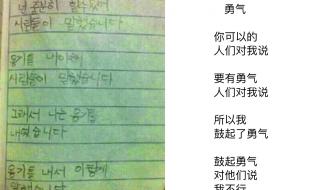 넌 충분히 할 수 있어
사람들이 말했습니다
용기를 내야해
사람들이 말했습니다
그래서 나는 용기를
내었습니다
용기를 내서 이렇게
勇气
你可以的
人们对我说
要有勇气
人们对我说
所以我
鼓起了勇气
鼓起勇气
对他们说
我不行